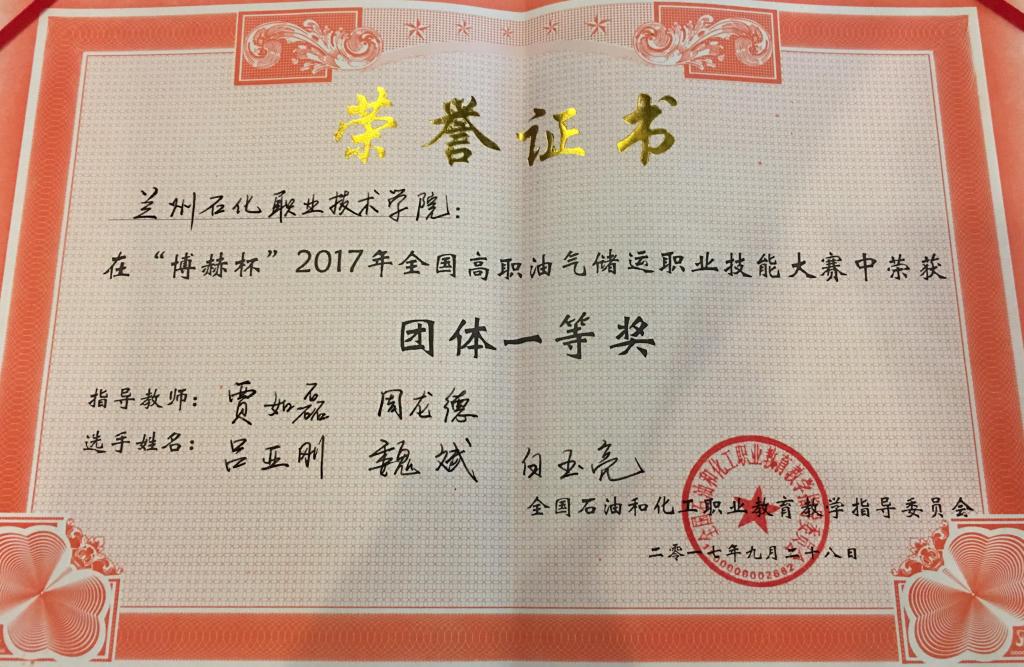 荣誉证书
兰州石化职业技术学院：
在“博赫杯”2017年全国高职油气储运职业技能大赛中荣获
团体一等奖
指导教师：贾如磊 周龙德
选手姓名：吕亚刚 魏斌 白玉亮
全国石油和化工职业教育教学指导委员会
二零一七年九月二十八日
全国石油和化工职业教育教学指导委员会
00000002682